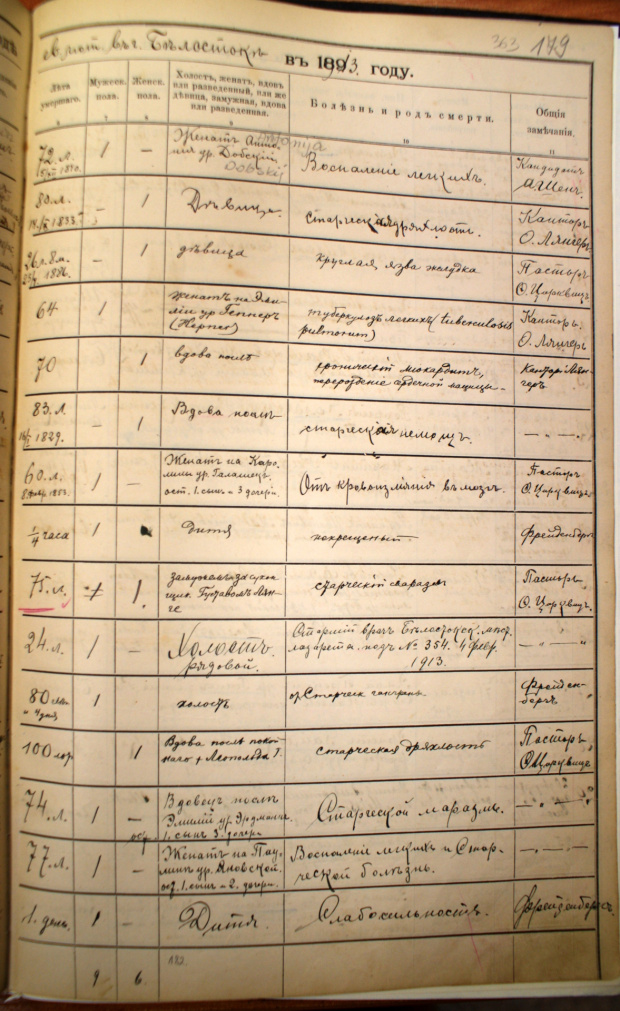 363 179
въ г. Бѣлостокѣ въ 1893 году.
Лѣта умершаго.
Мужеск. пола.
Женск. пола.
Холостъ, женатъ, вдовъ
или разведенный, или же
дѣвица, замужняя, вдова
или разведенная.
Болѣзнь и родъ смерти.
Общія
замѣчанія.
10
11
72. л. 1 — Женатъ Анто-
нія ур. Добскій Antonija
Dobskij
Воспаленіе легкихъ.
Кандидатъ
А. Шенъ.
83. л. — 1 Дѣвица. Старческая дряхлость. Канторъ
1833.
О. Лянгеръ
26 л. 8 м. — 1 дѣвица круглая язва желудка Пасторъ
1886.
О. Цирквицъ
64 1 женатъ на Эми-
ліи ур. Геппнеръ
туберкулозъ легкихъ (tuberculosis
pulmonum)
Канторъ
О. Лянгеръ
70 1 вдова послѣ
хроническій міокардитъ,
перерожденіе сердечной мышцы
Канторъ Лян-
геръ
83. л. — 1 Вдова послѣ
1829.
старческая немощь. — " —
60. л. 1 — Женатъ на Каро-
лині ур.
ост. 1. сынъ и 3 дочери
Отъ кровоизліянія въ мозгъ.
Пасторъ
О. Цирквицъ
1/4 часа 1 дитя некрещеный Фрейденбергъ
75. л. 1. замужемъ за
Густавомъ Лян-
ге
старческій маразмъ
Пасторъ
О. Цирквицъ.
24. л. 1 — Холостъ.
рядовой.
Старшій врачъ Бѣлостокск. мѣст.
лазарета. подъ № 354. 4 февр.
1913.
— " —
80 лѣтъ
и 4 дня
1 холостъ Старческ. гангрены Фрейден-
бергъ
100 1 Вдова послѣ покой-
наго + Леопольда
старческая дряхлость
Пасторъ
О. Цирквицъ
74. л. 1 — Вдовецъ послѣ
Эмиліи ур. Эрдманъ.
ост. 1. сынъ 3. дочери
Старческой маразмъ. — " —
77. л. 1 — Женатъ на Пау-
линѣ ур. Яновской.
ост. 1. сынъ и 2. дочери.
Воспаленіе легкихъ и Стар-
ческой болѣзнь.
— " —
1. день. 1 — Дитя. Слабосильность. Фрейденбергъ.
182
9 6